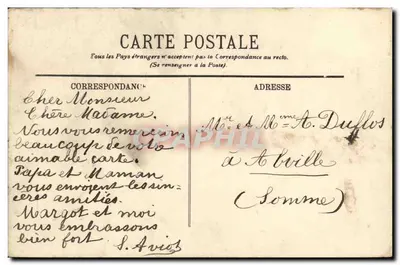 CARTE POSTALE
Tous les Pays étrangers n'acceptent pas la Correspondance au recto.
(Se renseigner à la Poste).
CORRESPONDANCE
Cher Monsieur
Chère Madame.
Vous vous remercion
beaucoup de vota
aimable carte.
Papa et Maman
vous envoyent les sin-
cères amitiés.
Margot et moi
vous embrassons
bien fort.
S. Aviot
ADRESSE
Mr et Mme A. Duflos
à Abville
(Somme)